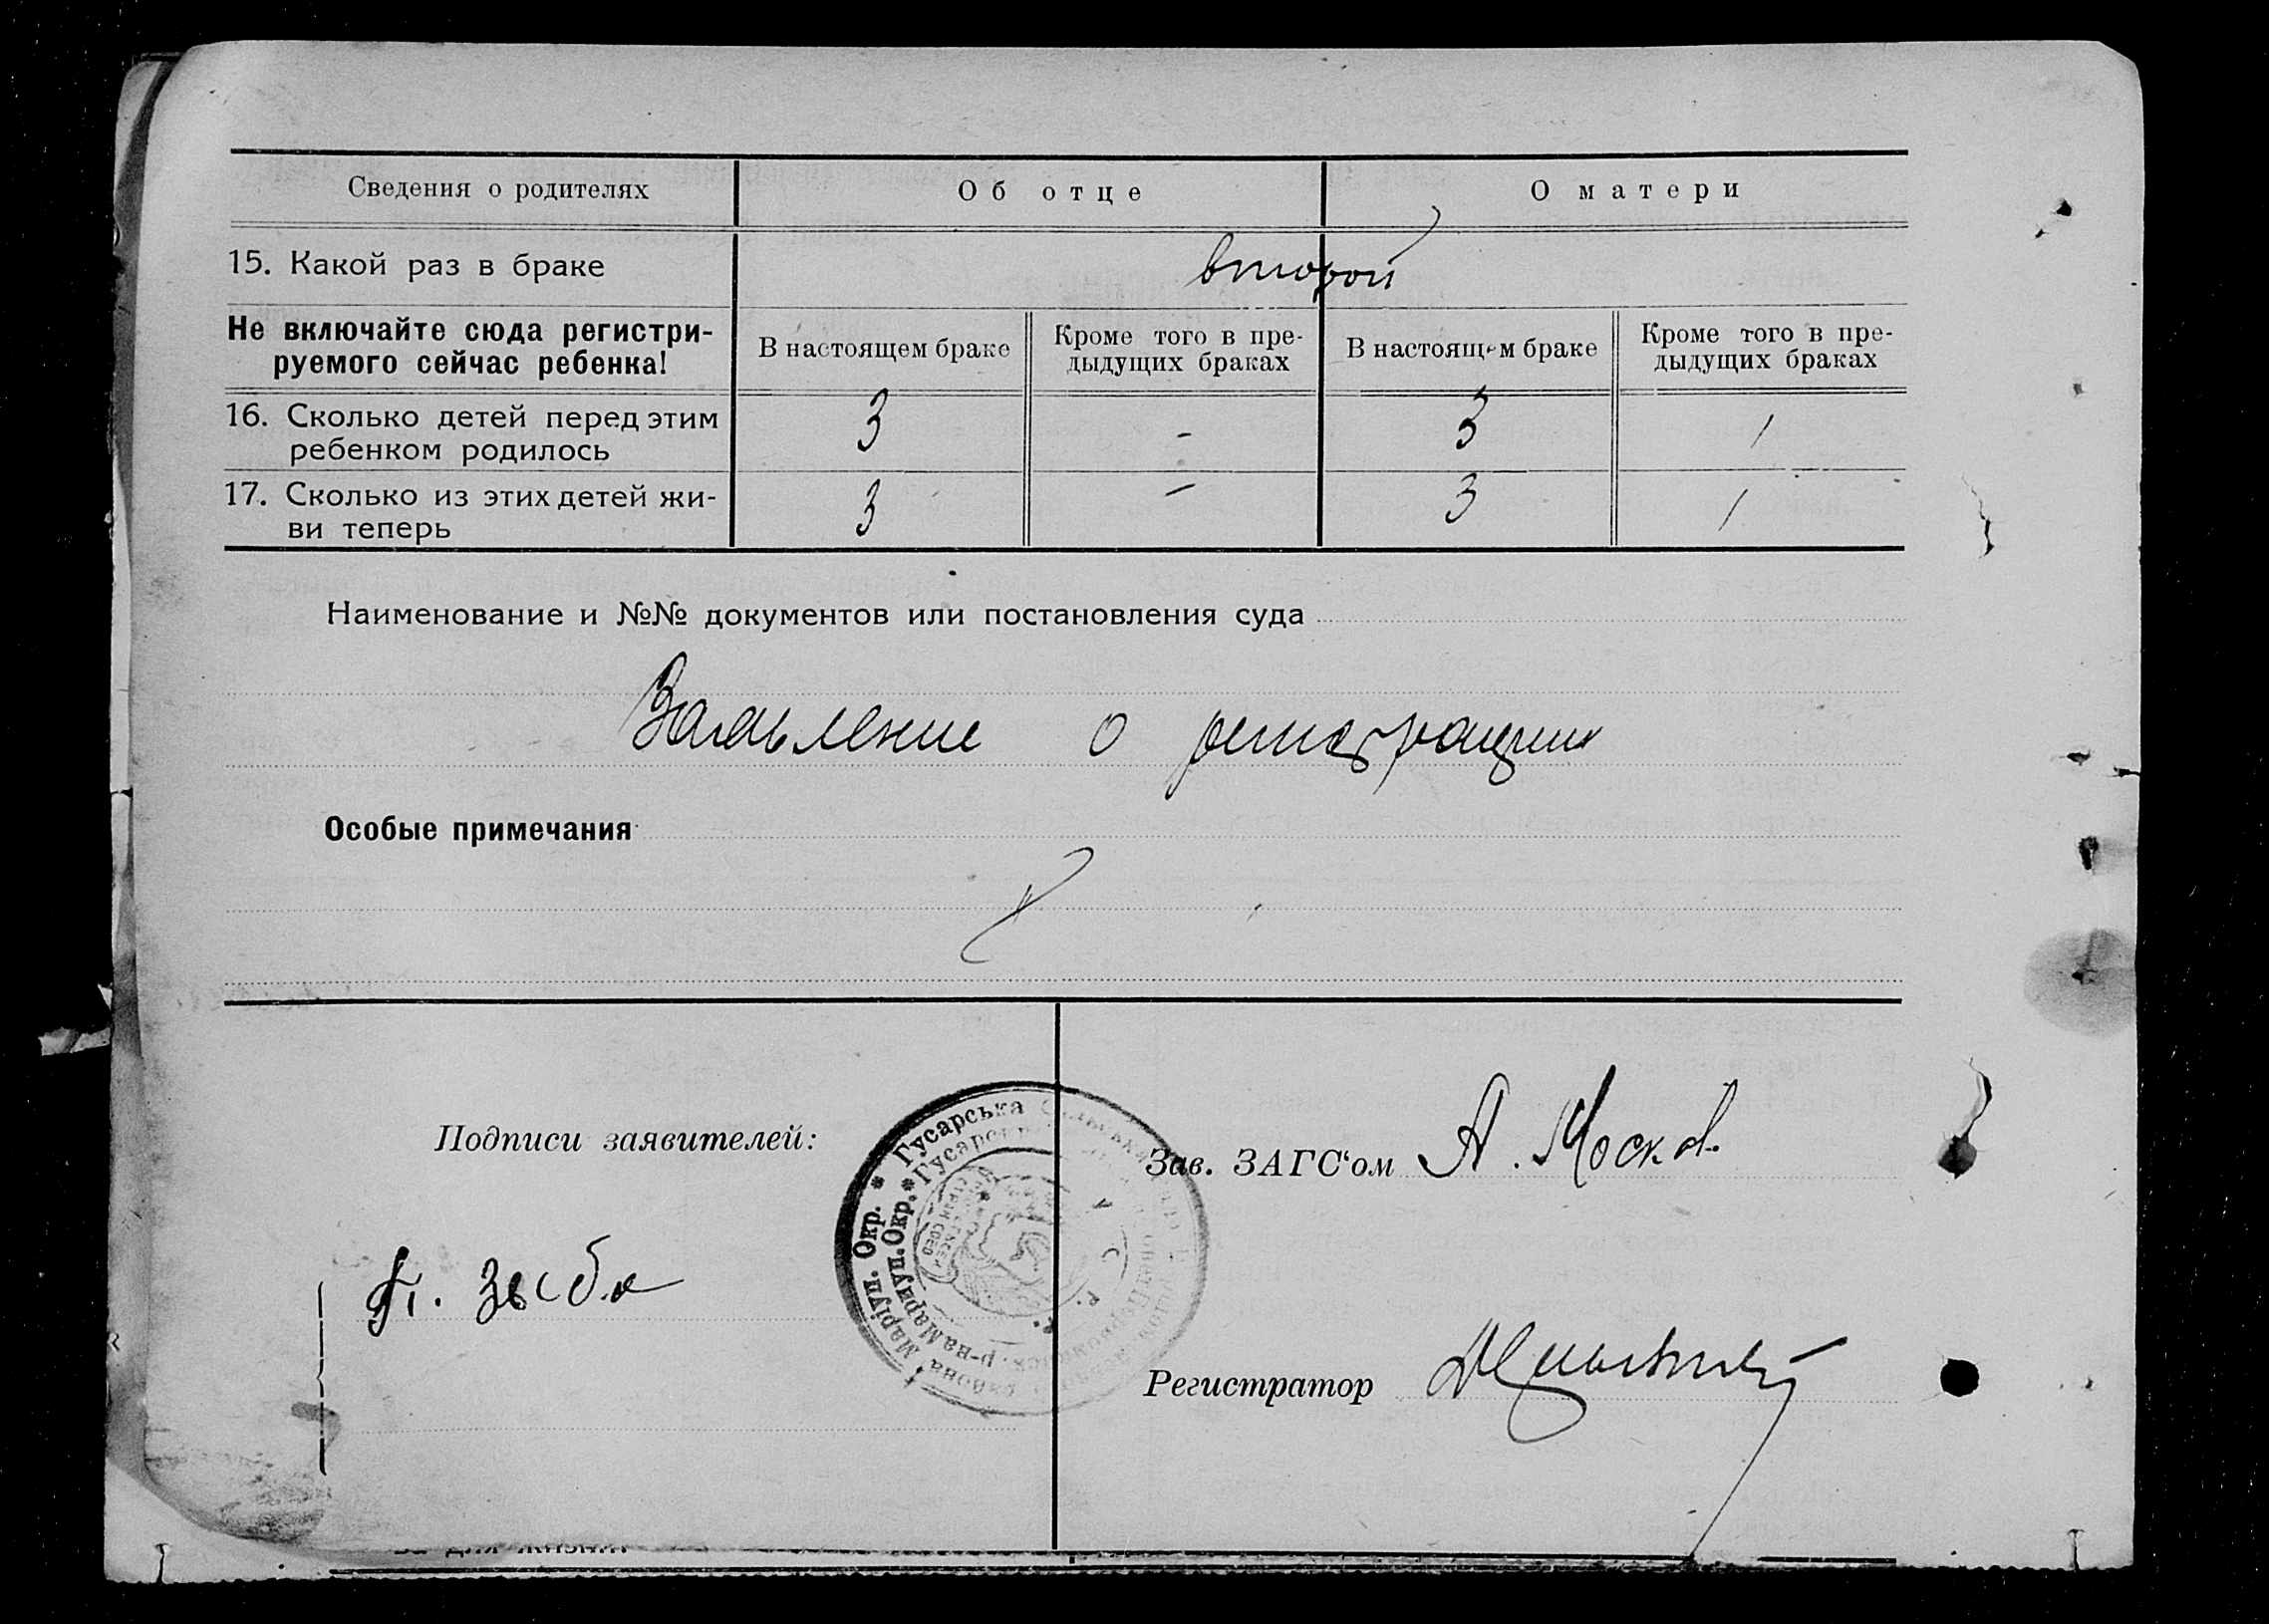 Сведения о родителях
Об отце
О матери
15. Какой раз в браке
второй
Не включайте сюда регистри-
руемого сейчас ребенка!
В настоящем браке
Кроме того в пре-
дыдущих браках
В настоящем браке
Кроме того в пре-
дыдущих браках
16. Сколько детей перед этим
ребенком родилось
3
-
3
1
17. Сколько из этих детей жи-
ви теперь
3
-
3
1
Наименование и №№ документов или постановления суда
Заявление о регистрации
Особые примечания
Подписи заявителей:
Зав. ЗАГС‘ом А. Москов
Регистратор
Гусарська
Маріуп. Окр.
р-на Мариуп. Окр.